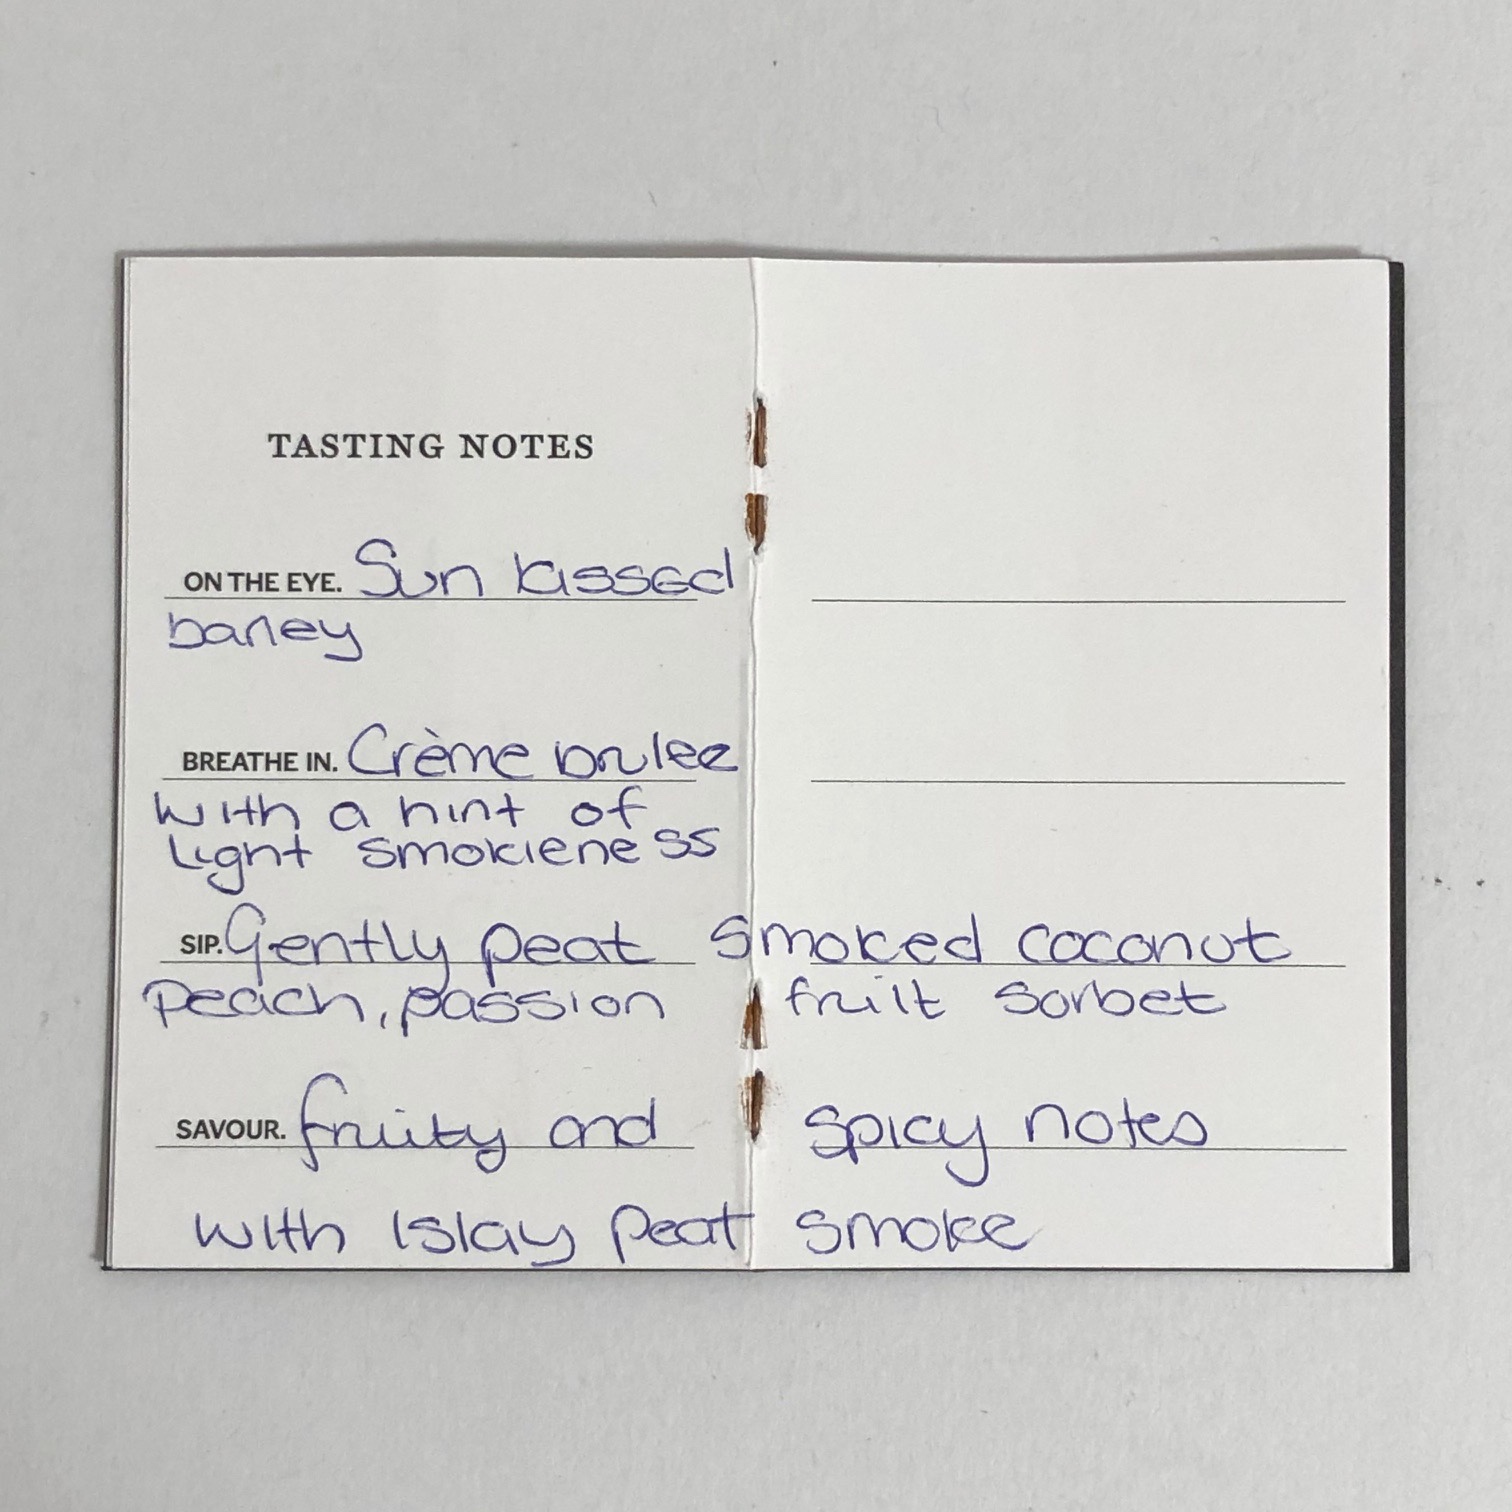 TASTING NOTES
ON THE EYE. Sun kissed
barley
BREATHE IN. Crème brulee
with a hint of
light smokieness
SIP. Gently peat smoked coconut
Peach, passion fruit sorbet
SAVOUR. fruity and spicy notes
with Islay peat smoke